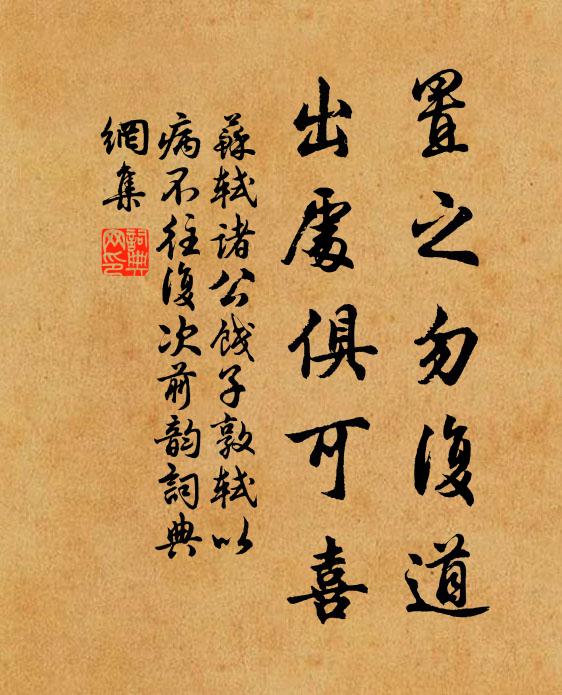 置之勿復道
出處俱可喜
蘇軾諸公餞子敦軾以
病不往復次前韵詞典
網集
詞典
网印